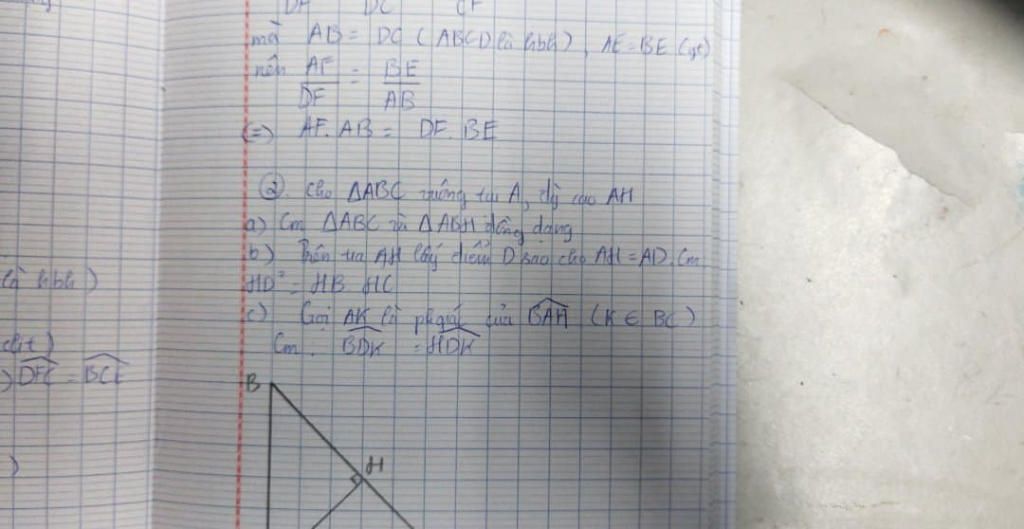 là hbh)
chứt)
) DFC = BCE
)
DF DC CF
mà AB = DC (ABCD là hbh), AE = BE (gt)
nên AF/DF = BE/AB
(=) AF. AB = DF. BE
②. Cho ΔABC vuông tại A, đg cao AH
a) Cm ΔABC và ΔABH đồng dạng
b) Trên tia AH lấy điểm D sao cho AH = AD. Cm
HD² = HB. HC
c) Gọi AK là phgiác của BAH (K ∈ BC)
Cm. BDK = HDK
B
H